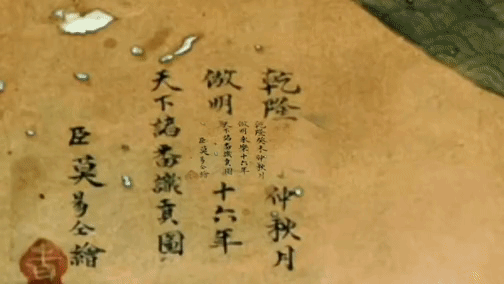 乾隆 仲秋月
倣明 十六年
天下諸番識貢圖
臣莫易仝繪
乾隆癸未仲秋月
倣明永樂十六年
天下諸番識貢圖
臣莫易仝繪